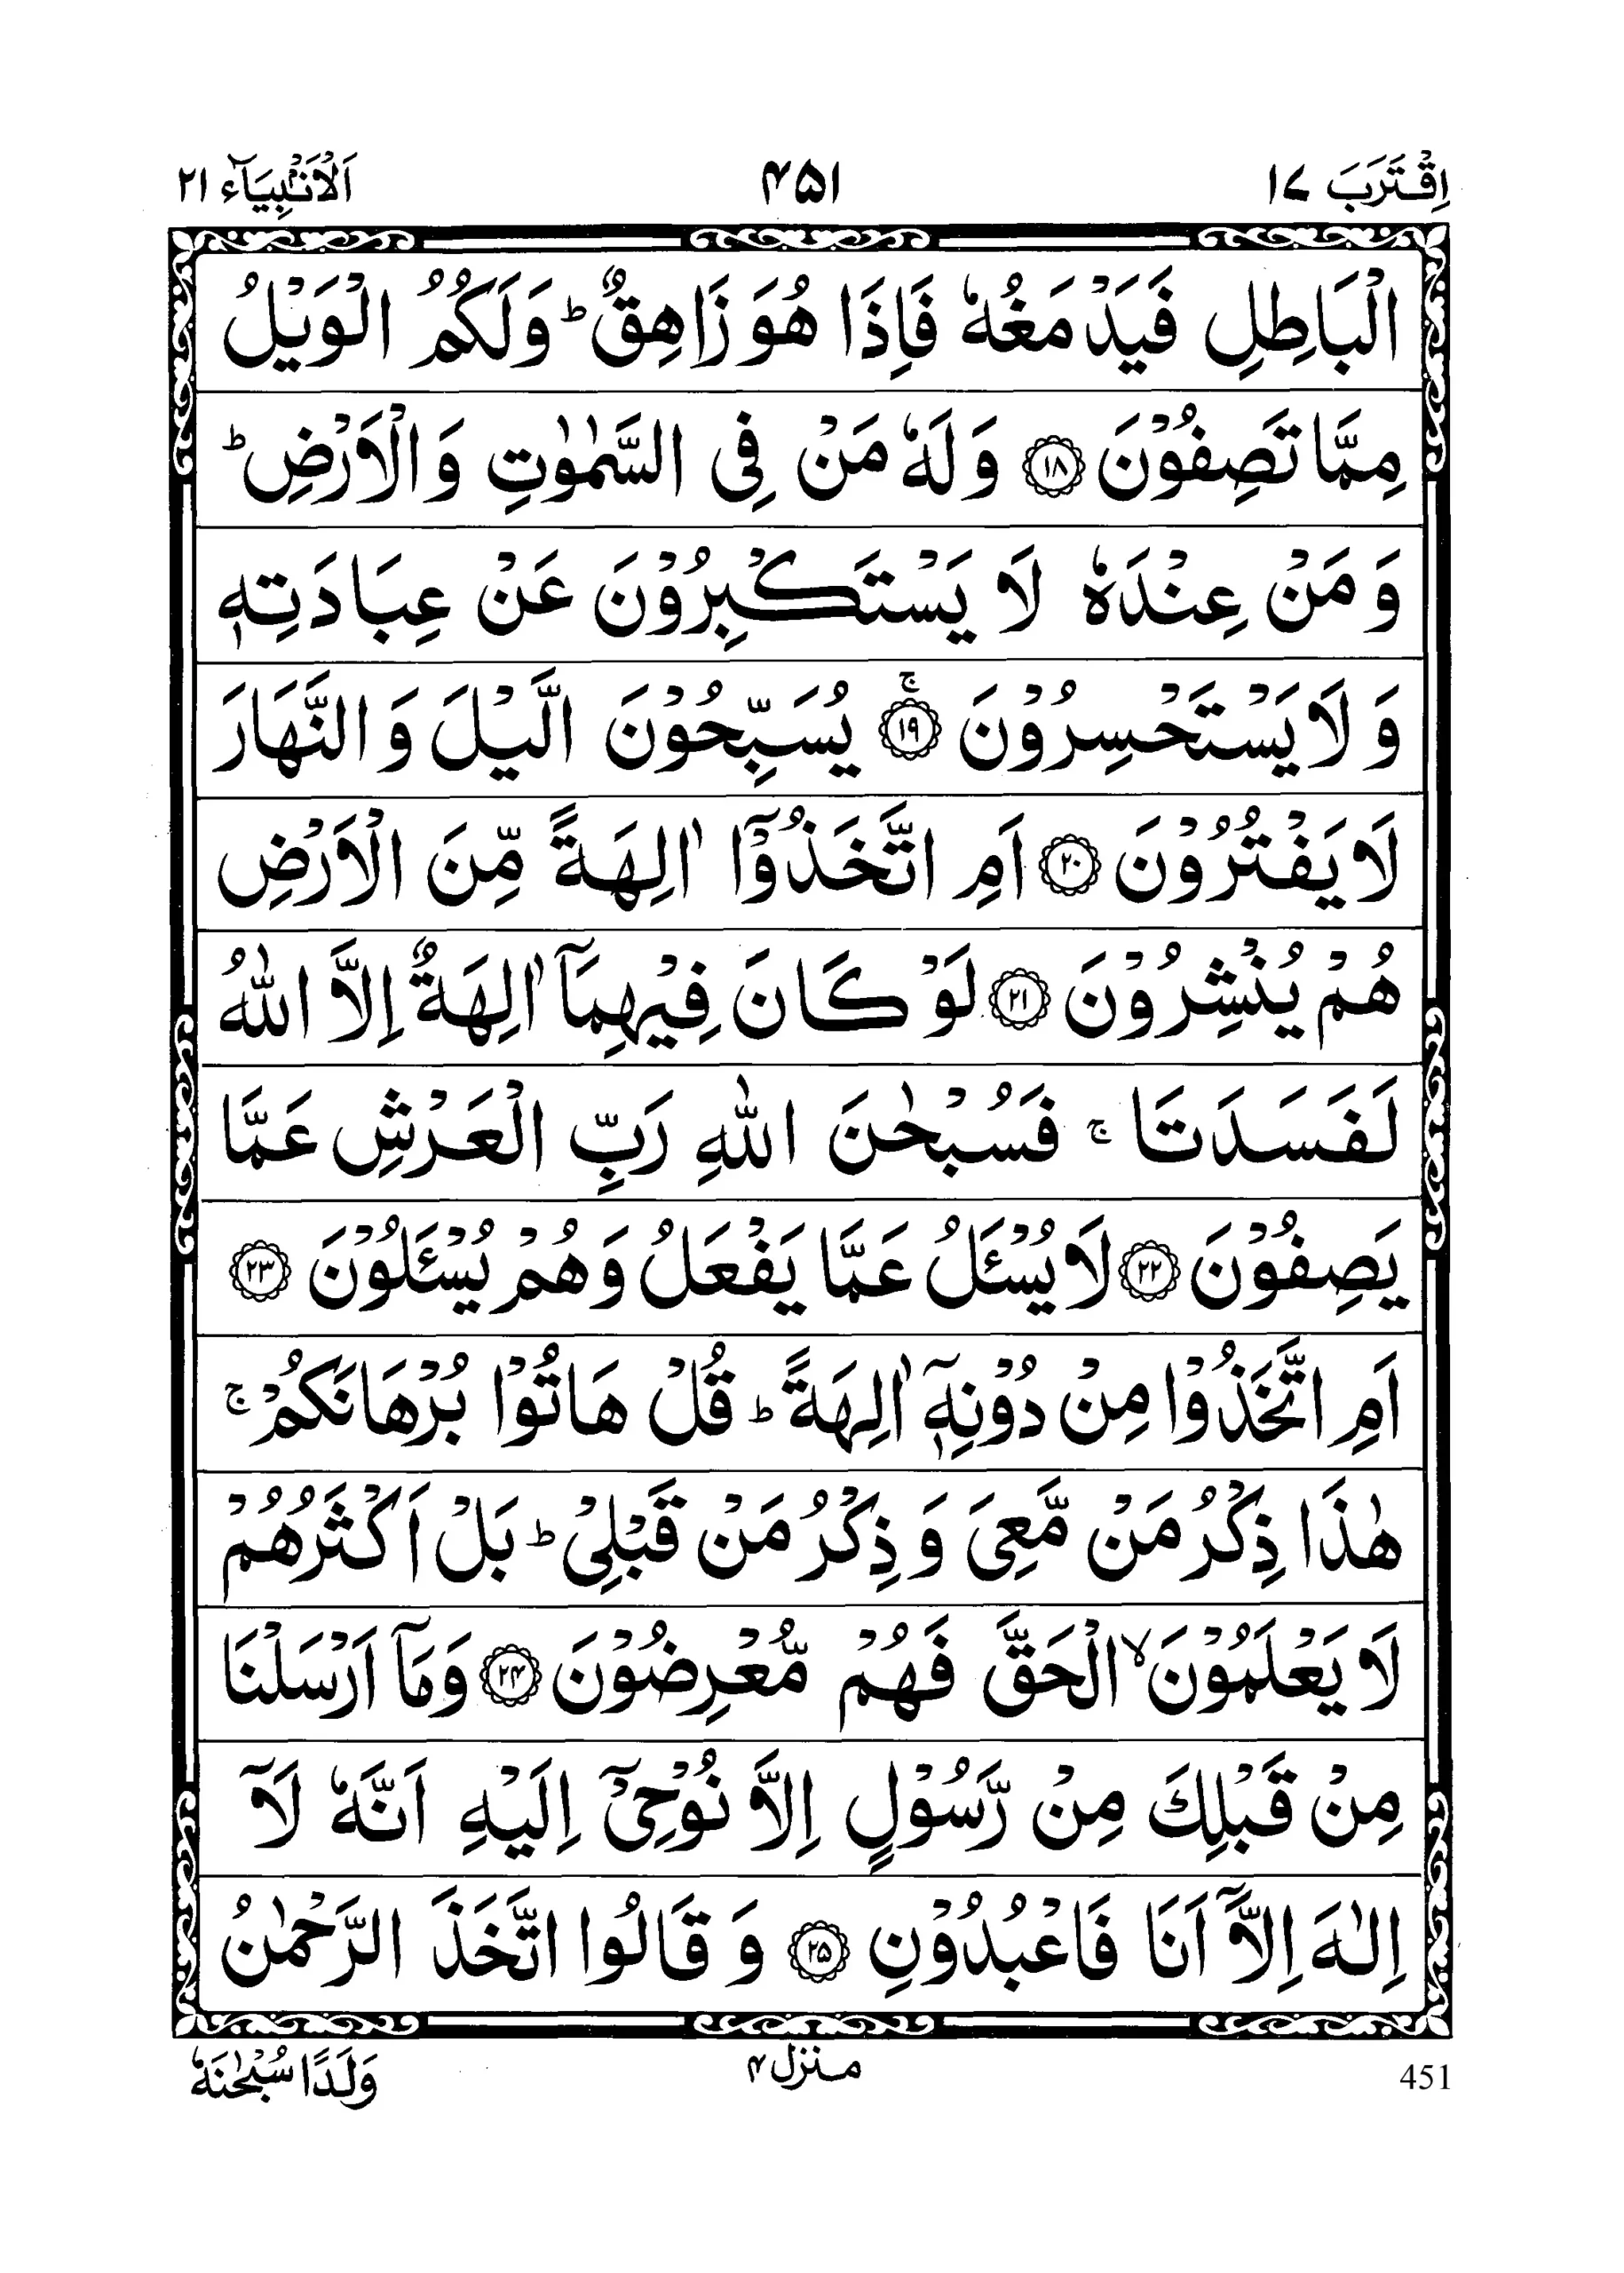 اِقْتَرَبَ ١٧ ۴۵۱ اَلْاَنْۢبِيَآء ٢١
الْبَاطِلِ فَيَدْمَغُهٗ فَاِذَا هُوَ زَاهِقٌ ؕ وَلَكُمُ الْوَيْلُ
مِمَّا تَصِفُوْنَ ۝١٨ وَلَهٗ مَنْ فِى السَّمٰوٰتِ وَالْاَرْضِ ؕ
وَمَنْ عِنْدَهٗ لَا يَسْتَكْبِرُوْنَ عَنْ عِبَادَتِهٖ
وَلَا يَسْتَحْسِرُوْنَ ۚ۝١٩ يُسَبِّحُوْنَ الَّيْلَ وَالنَّهَارَ
لَا يَفْتُرُوْنَ ۝٢٠ اَمِ اتَّخَذُوْۤا اٰلِهَةً مِّنَ الْاَرْضِ
هُمْ يُنْشِرُوْنَ ۝٢١ لَوْ كَانَ فِيْهِمَاۤ اٰلِهَةٌ اِلَّا اللّٰهُ
لَفَسَدَتَا ۚ فَسُبْحٰنَ اللّٰهِ رَبِّ الْعَرْشِ عَمَّا
يَصِفُوْنَ ۝٢٢ لَا يُسْـَٔلُ عَمَّا يَفْعَلُ وَهُمْ يُسْـَٔلُوْنَ ۝٢٣
اَمِ اتَّخَذُوْا مِنْ دُوْنِهٖۤ اٰلِهَةً ؕ قُلْ هَاتُوْا بُرْهَانَكُمْ ۚ
هٰذَا ذِكْرُ مَنْ مَّعِىَ وَذِكْرُ مَنْ قَبْلِىْ ؕ بَلْ اَكْثَرُهُمْ
لَا يَعْلَمُوْنَ ۙ الْحَقَّ فَهُمْ مُّعْرِضُوْنَ ۝٢۴ وَمَاۤ اَرْسَلْنَا
مِنْ قَبْلِكَ مِنْ رَّسُوْلٍ اِلَّا نُوْحِىْۤ اِلَيْهِ اَنَّهٗ لَاۤ
اِلٰهَ اِلَّاۤ اَنَا فَاعْبُدُوْنِ ۝٢۵ وَقَالُوا اتَّخَذَ الرَّحْمٰنُ
451 منزل ۴ وَلَدًا سُبْحٰنَهٗ